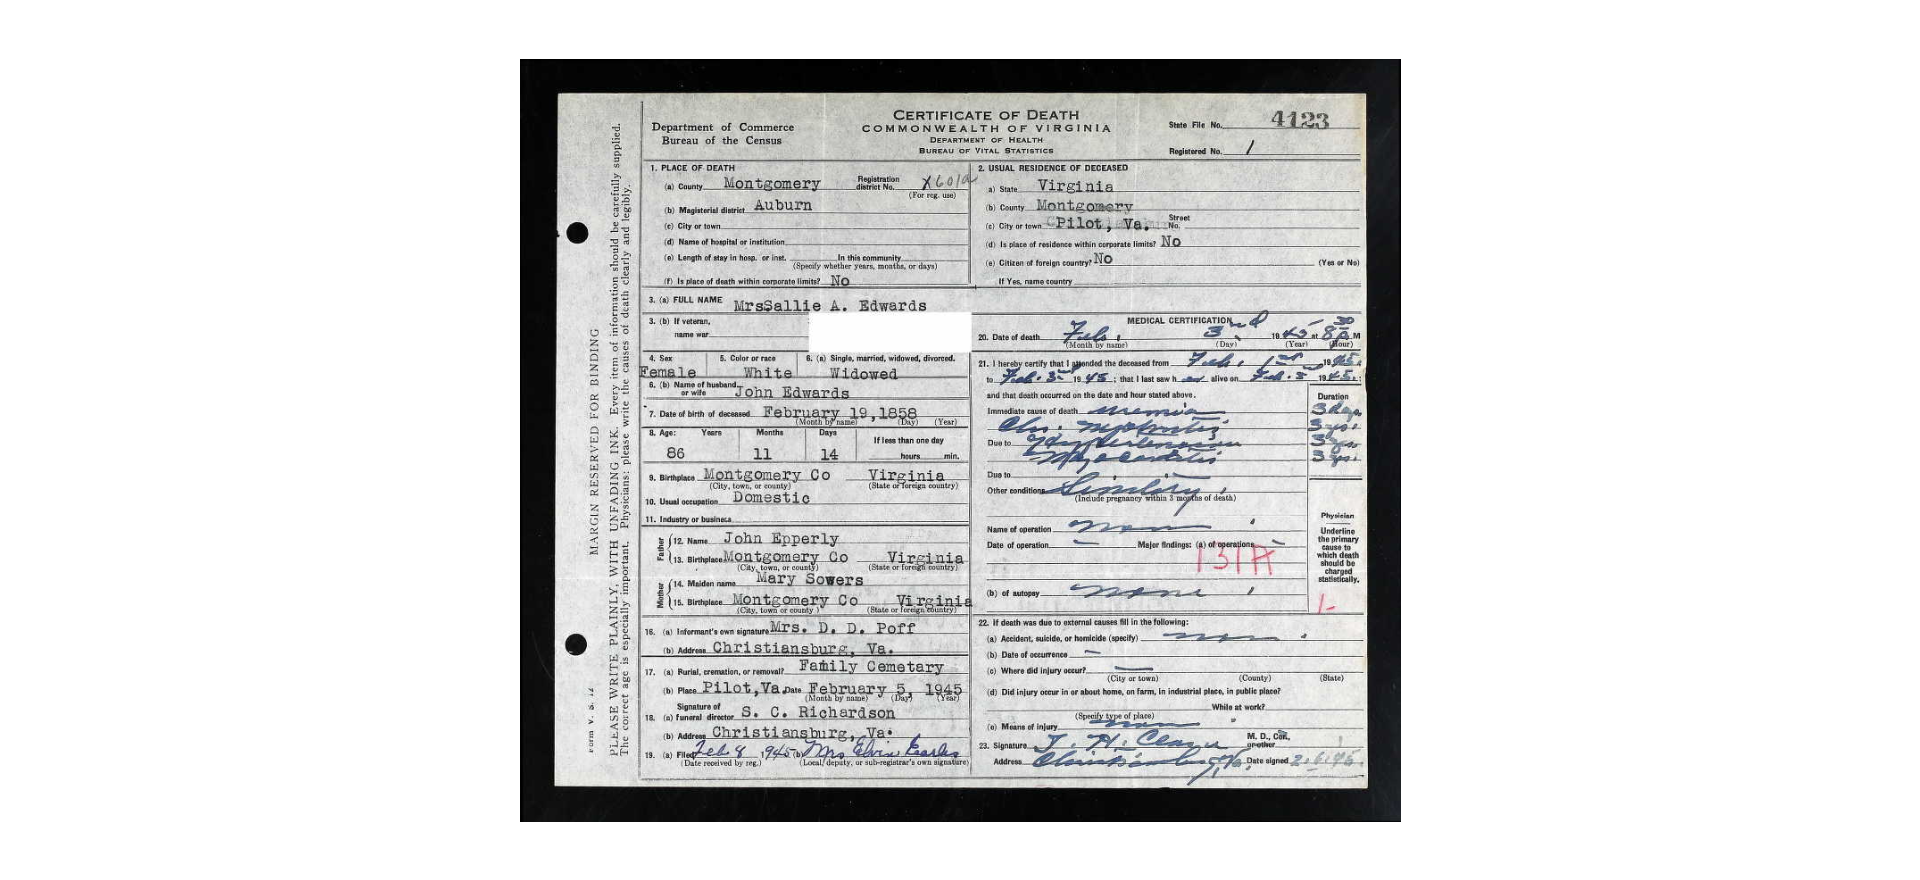 CERTIFICATE OF DEATH
COMMONWEALTH OF VIRGINIA
DEPARTMENT OF HEALTH
BUREAU OF VITAL STATISTICS
Department of Commerce
Bureau of the Census
State File No. 4123
Registered No. 1
MARGIN RESERVED FOR BINDING
PLEASE WRITE PLAINLY, WITH UNFADING INK. Every item of information should be carefully supplied.
The correct age is especially important. Physicians: please write the causes of death clearly and legibly.
Form V. S. 12
1. PLACE OF DEATH
(a) County Montgomery Registration district No. X601a
(For reg. use)
(b) Magisterial district Auburn
(c) City or town
(d) Name of hospital or institution
(e) Length of stay in hosp. or inst. In this community
(Specify whether years, months, or days)
(f) Is place of death within corporate limits? No
2. USUAL RESIDENCE OF DECEASED
a) State Virginia
(b) County Montgomery
(c) City or town Pilot, Va. Street No.
(d) Is place of residence within corporate limits? No
(e) Citizen of foreign country? No (Yes or No)
If Yes, name country
3. (a) FULL NAME MrsSallie A. Edwards
3. (b) If veteran,
name war
4. Sex 5. Color or race 6. (a) Single, married, widowed, divorced.
Female White Widowed
6. (b) Name of husband or wife John Edwards
7. Date of birth of deceased February 19,1858
(Month by name) (Day) (Year)
8. Age: Years Months Days If less than one day
86 11 14 hours min.
9. Birthplace Montgomery Co Virginia
(City, town, or county) (State or foreign country)
10. Usual occupation Domestic
11. Industry or business
Father
12. Name John Epperly
13. Birthplace Montgomery Co Virginia
(City, town, or county) (State or foreign country)
Mother
14. Maiden name Mary Sowers
15. Birthplace Montgomery Co Virginia
(City, town or county ) (State or foreign country)
16. (a) Informant's own signature Mrs. D. D. Poff
(b) Address Christiansburg, Va.
17. (a) Burial, cremation, or removal? Family Cemetary
(b) Place Pilot,Va Date February 5, 1945
(Month by name) (Day) (Year)
Signature of
18. (a) funeral director S. C. Richardson
(b) Address Christiansburg, Va.
19. (a) Filed Feb. 8 1945 (b) Mrs Elvin Earles
(Date received by reg.) (Local, deputy, or sub-registrar's own signature)
MEDICAL CERTIFICATION
20. Date of death Feb. 3rd 1945 at 8 30 P M
(Month by name) (Day) (Year) (Hour)
21. I hereby certify that I attended the deceased from Feb. 1st 1945
to Feb. 3rd 1945; that I last saw her alive on Feb. 3 1945
and that death occurred on the date and hour stated above.
Duration
Immediate cause of death uremia 3 days
Chr. Nephritis 3 yrs.
Due to Hypertension 3 yrs
Myocarditis 3 yrs.
Due to
Other conditions Senility
(Include pregnancy within 3 months of death)
Name of operation none
Date of operation - Major findings: (a) of operations -
131A
(b) of autopsy none
Physician
Underline
the primary
cause to
which death
should be
charged
statistically.
1-
22. If death was due to external causes fill in the following:
(a) Accident, suicide, or homicide (specify) none
(b) Date of occurrence -
(c) Where did injury occur?
(City or town) (County) (State)
(d) Did injury occur in or about home, on farm, in industrial place, in public place?
While at work?
(Specify type of place)
(e) Means of injury none
23. Signature M. D., Cor., or other
Address Christiansburg, Va. Date signed 2.6.45